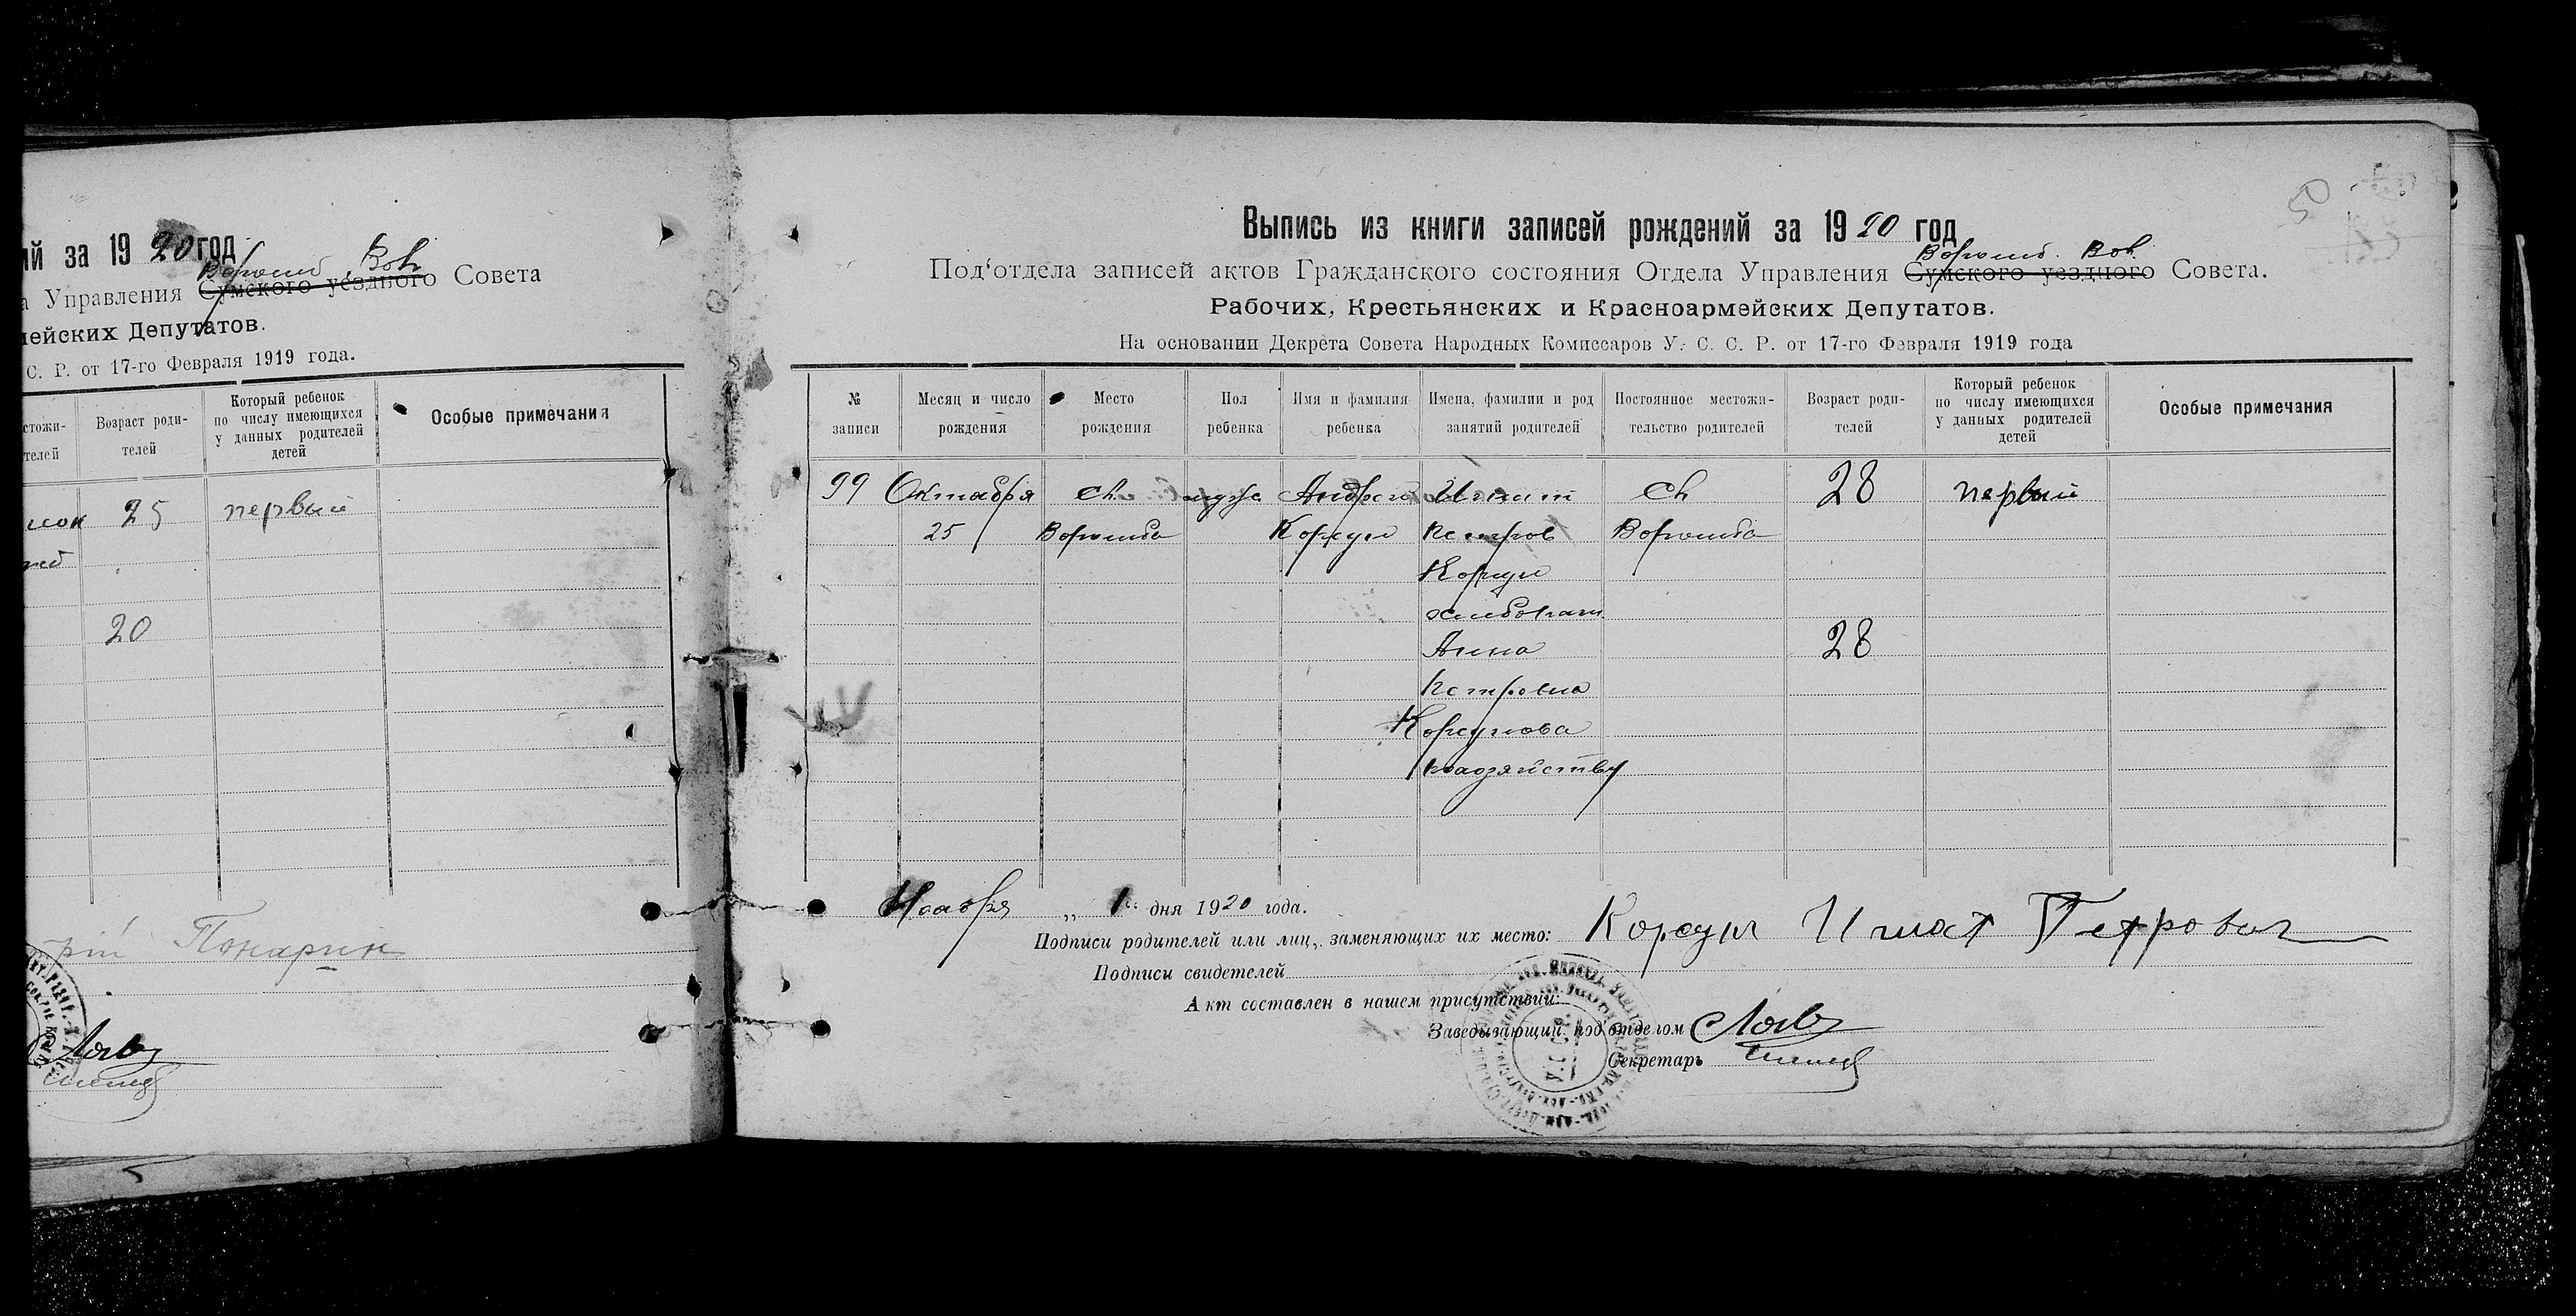 ий за 1920 год
Ворожб. Вол.
а Управления Сумского уездного Совета
мейских Депутатов.
С. Р. от 17-го Февраля 1919 года.
стожи-
телей
Возраст роди-
телей
Который ребенок
по числу имеющихся
у данных родителей
детей
Особые примечания
25 первый
20
рій Понарин
Выпись из книги записей рождений за 1920 год
Ворожб. Вол.
Под‘отдела записей актов Гражданского состояния Отдела Управления Сумского уездного Совета.
Рабочих, Крестьянских и Красноармейских Депутатов.
На основании Декрета Совета Народных Комиссаров У. С. С. Р. от 17-го Февраля 1919 года
№
записи
Месяц и число
рождения
Место
рождения
Пол
ребенка
Имя и фамилия
ребенка
Имена, фамилии и род
занятий родителей
Постоянное местожи-
тельство родителей
Возраст роди-
телей
Который ребенок
по числу имеющихся
у данных родителей
детей
Особые примечания
99 Октября сл. мужс Андрей Игнат сл 28 первый
25 Ворожба Корсун Петров Ворожба
Корсун
хлебопаш
Анна 28
Петровна
Корсунова
Ноября „ 1 “ дня 1920 года.
Подписи родителей или лиц, заменяющих их место: Корсун Игнат Петрович
Подписи свидетелей
Акт составлен в нашем присутствии:
Заведывающий под‘отделом
Секретарь